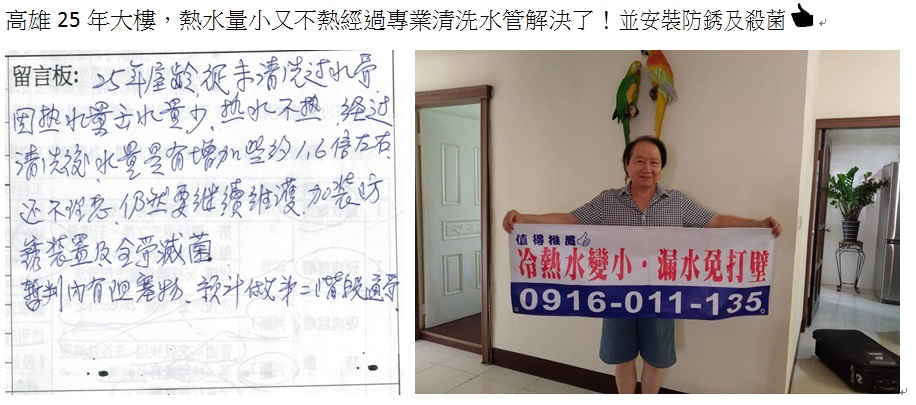 高雄 25 年大樓，熱水量小又不熱經過專業清洗水管解決了！並安裝防銹及殺菌
留言板: 25年屋龄從未清洗过水管
因热水量出水量少，热水不热，经过
清洗後水量是有增加些约1.6倍左右，
还不理想，仍然要继續維護，加装防
锈装置及全管滅菌
暫判内有阻塞物、预计做第二階段通管
值得推薦
冷熱水變小·漏水免打壁
0916-011-135。